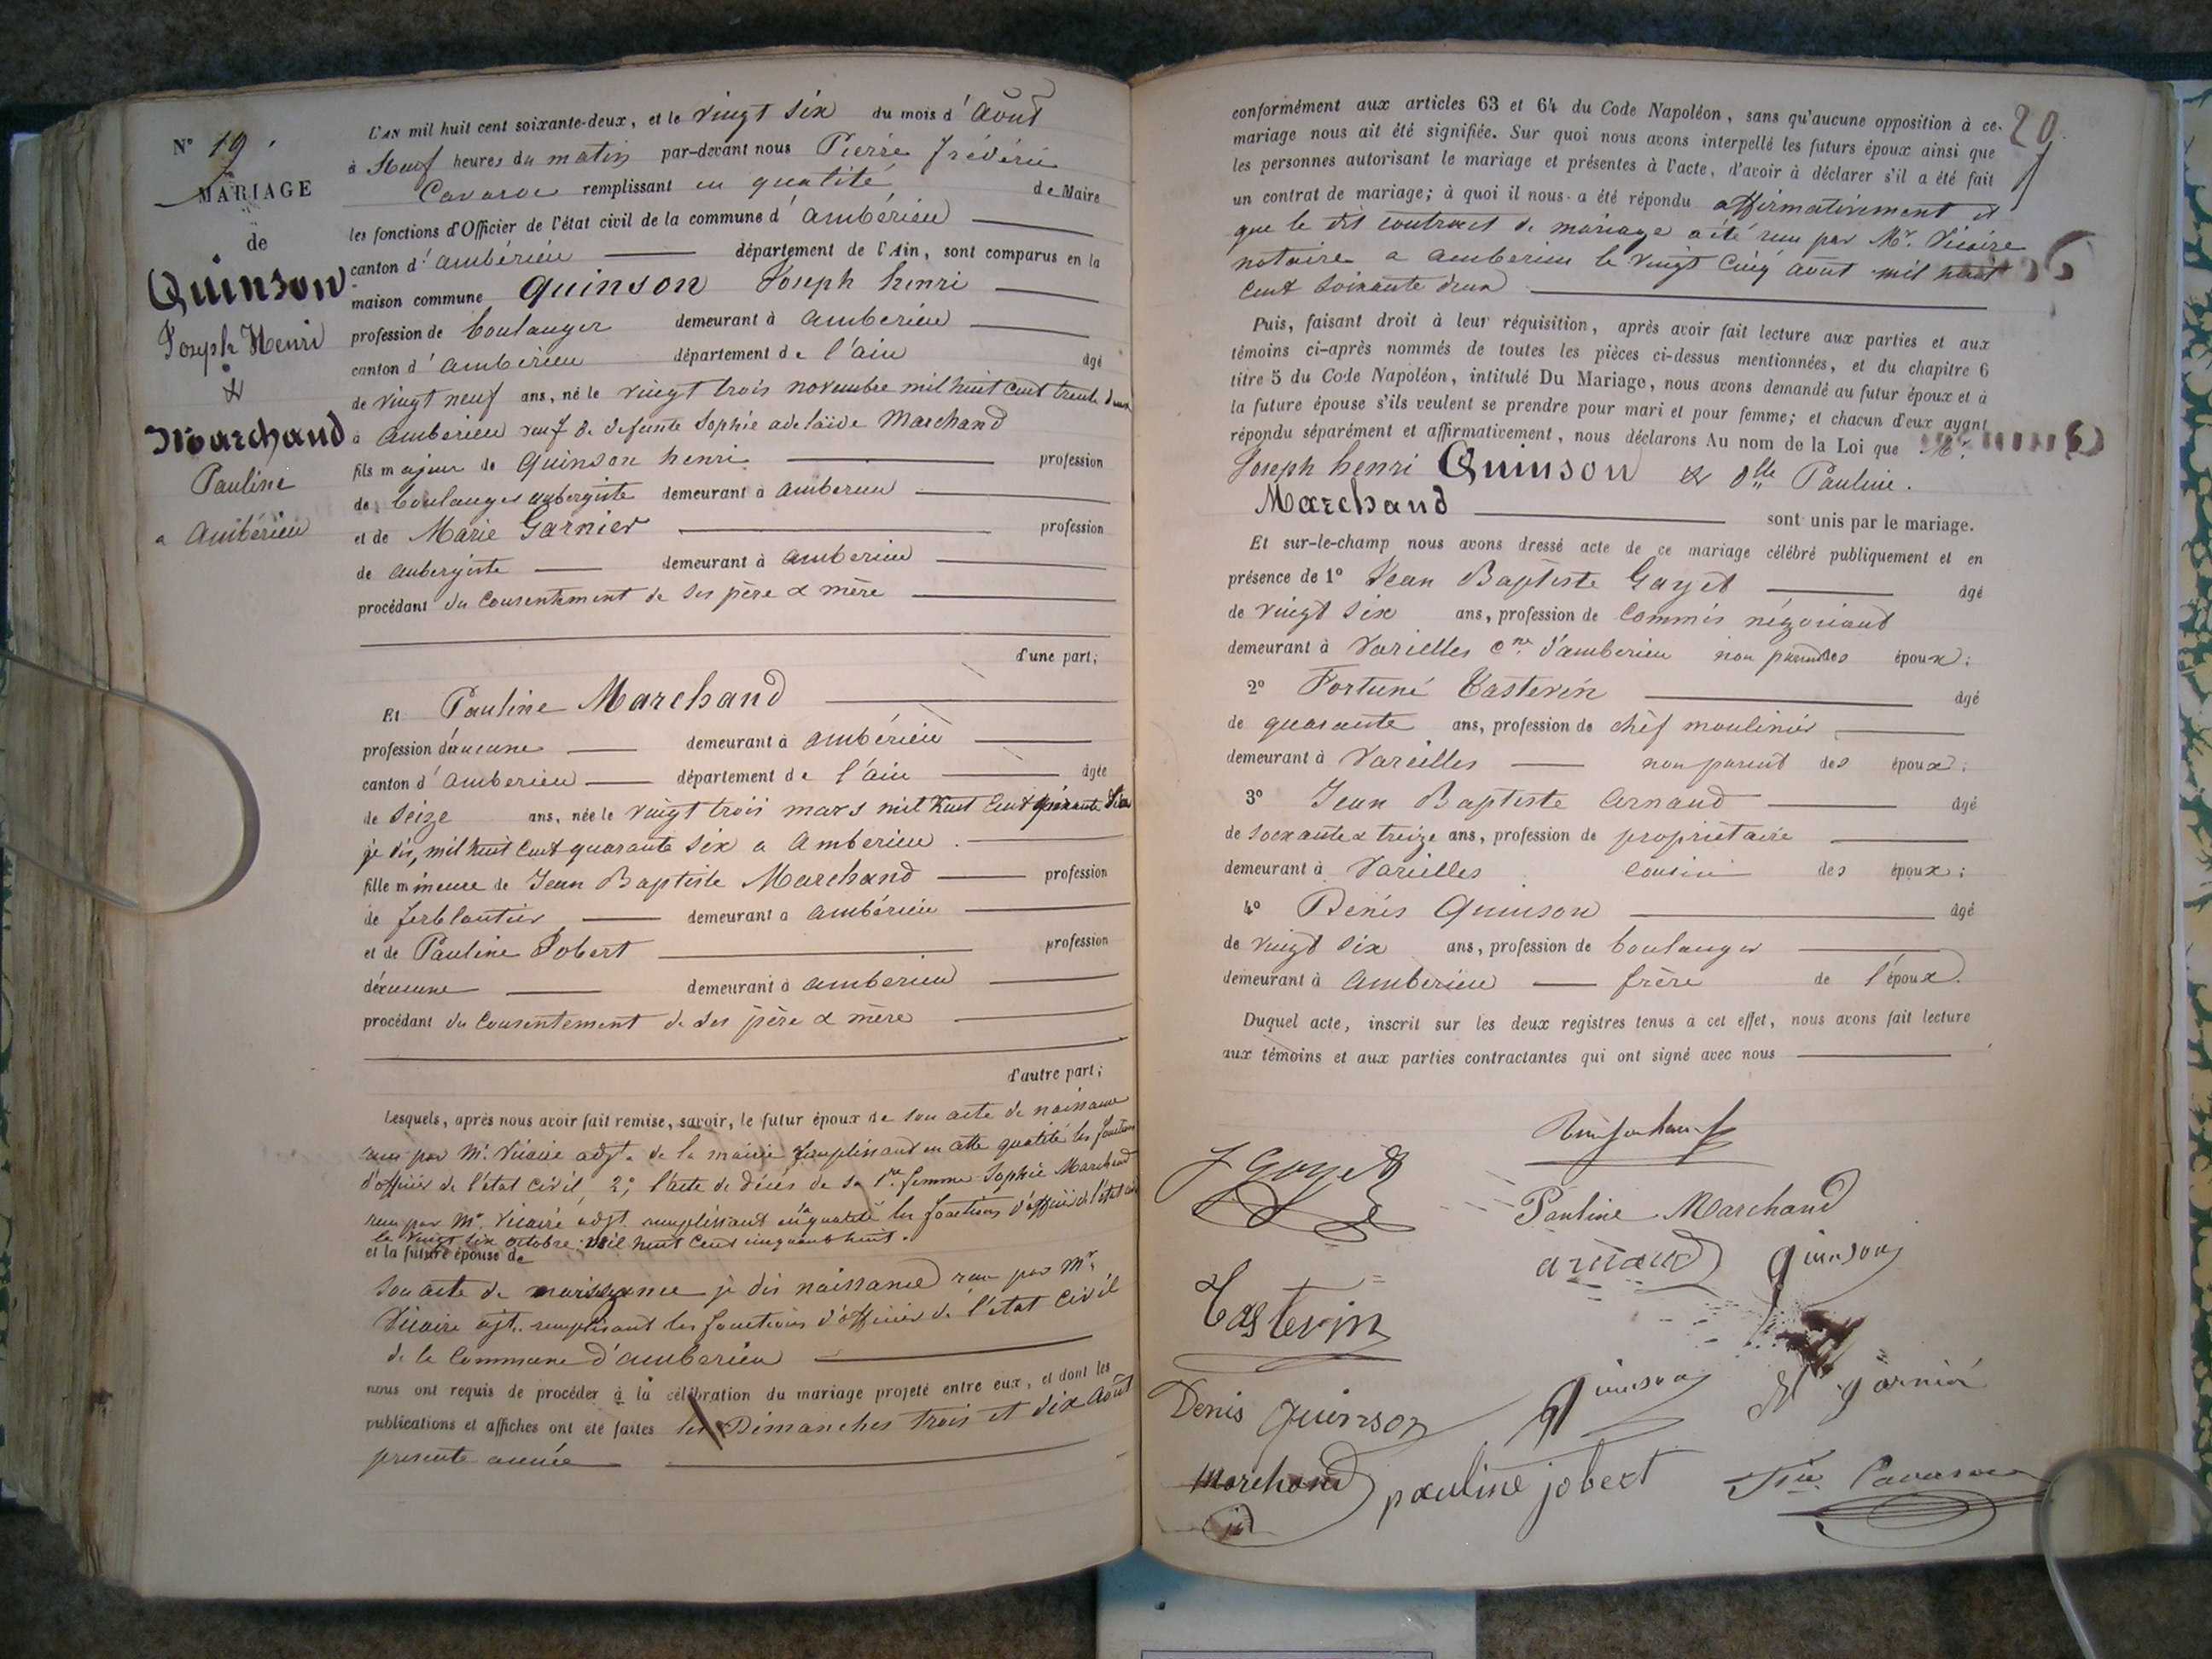 N° 19.
MARIAGE
de
Quinson
Joseph Henri
&
Marchand
Pauline
a Ambérieu
L'AN mil huit cent soixante-deux, et le vingt six du mois d'Août
à Neuf heures du matin par-devant nous Pierre frédéric
remplissant en qualité de Maire
les fonctions d'Officier de l'état civil de la commune d'ambérieu
canton d'ambérieu département de l'Ain, sont comparus en la
maison commune quinson Joseph henri
profession de boulanger demeurant à amberieu
canton d'amberieu département de l'ain âgé
de vingt neuf ans, né le vingt trois novembre mil huit cent trente deux
à amberieu veuf de defunte Sophie adelaïde Marchand
fils majeur de quinson henri profession
de boulanger aubergiste demeurant à amberieu
et de Marie Garnier profession
de aubergiste demeurant à amberieu
procédant du consentement de ses père & mère
d'une part;
Et Pauline Marchand
profession d'aucune demeurant à ambérieu
canton d'amberieu département de l'ain âgée
de seize ans, née le vingt trois mars mil huit cent Six
je dis, mil huit cent quarante six a amberieu.
fille mineure de Jean Baptiste Marchand profession
de ferblantier demeurant à ambérieu
et de Pauline Jobert profession
d'aucune demeurant à amberieu
procédant du consentement de ses père & mère
d'autre part;
Lesquels, après nous avoir fait remise, savoir, le futur époux de son acte de naissance
reçu par Mr. Vicaire adjt. de la mairie remplissant en cette qualité les fonctions
d'officier de l'état civil, 2°, l'acte de décès de sa 1re. femme Sophie Marchand
reçu par Mr. Vicaire adjt. remplissant en qualité les fonctions d'officier de l'état civil
le vingt six octobre mil huit cent cinquante huit.
et la future épouse de
son acte de je dis naissance reçu par Mr.
Vicaire ajt. remplissant les fonctions d'officier de l'état civil
de la commune d'amberieu
nous ont requis de procéder à la célébration du mariage projeté entre eux, et dont les
publications et affiches ont été faites les Dimanches trois et dix Août
presente année
20
conformément aux articles 63 et 64 du Code Napoléon, sans qu'aucune opposition à ce
mariage nous ait été signifiée. Sur quoi nous avons interpellé les futurs époux ainsi que
les personnes autorisant le mariage et présentes à l'acte, d'avoir à déclarer s'il a été fait
un contrat de mariage; à quoi il nous a été répondu affirmativement et
que le dit contract de mariage a été reçu par Mr. Vicaire
notaire a amberieu le vingt cinq août mil huit
cent soixante deux
Puis, faisant droit à leur réquisition, après avoir fait lecture aux parties et aux
témoins ci-après nommés de toutes les pièces ci-dessus mentionnées, et du chapitre 6
titre 5 du Code Napoléon, intitulé Du Mariage, nous avons demandé au futur époux et à
la future épouse s'ils veulent se prendre pour mari et pour femme; et chacun d'eux ayant
répondu séparément et affirmativement, nous déclarons Au nom de la Loi que Mr.
Joseph henri Quinson & Dlle Pauline.
Marchand sont unis par le mariage.
Et sur-le-champ nous avons dressé acte de ce mariage célébré publiquement et en
présence de 1° Jean Baptiste Goyet âgé
de vingt six ans, profession de commis négociant
demeurant à Vareilles cne. d'amberieu non parent des époux;
2° Fortuné Tastevin âgé
de quarante ans, profession de chef moulinier
demeurant à Vareilles non parent des époux;
3° Jean Baptiste Arnaud âgé
de soixante & treize ans, profession de propriétaire
demeurant à Vareilles cousin des époux;
4° Denis Quinson âgé
de vingt six ans, profession de boulanger
demeurant à Amberieu frère de l'époux.
Duquel acte, inscrit sur les deux registres tenus à cet effet, nous avons fait lecture
aux témoins et aux parties contractantes qui ont signé avec nous
J Goyet
Pauline Marchand
arnaud quinson
Tastevin
Denis quinson quinson garnié
Marchand pauline jobert